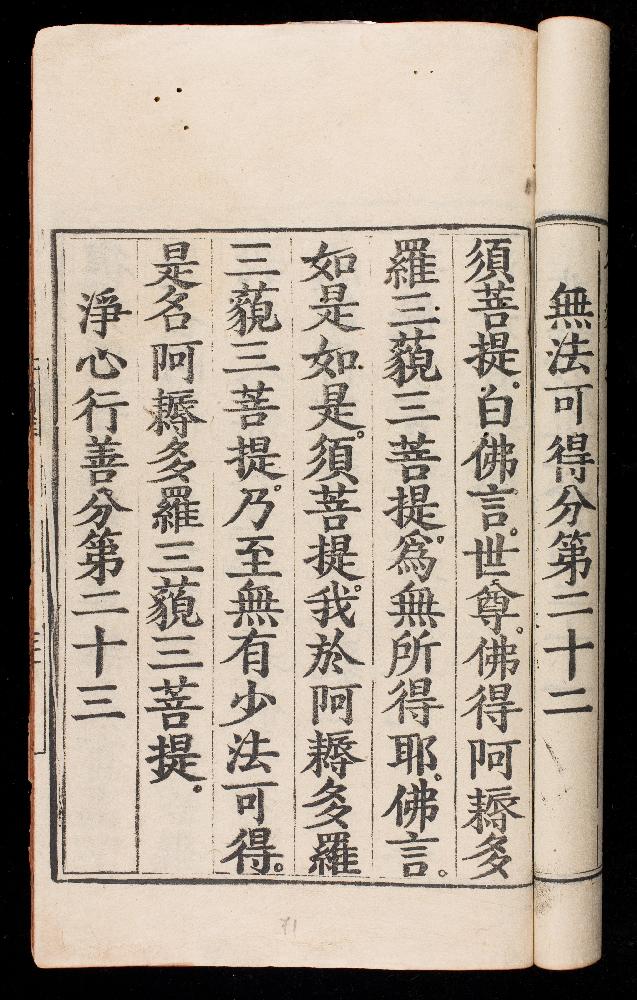 無法可得分第二十二
須菩提。白佛言。世尊。佛得阿耨多
羅三藐三菩提。爲無所得耶。佛言。
如是如是。須菩提。我於阿耨多羅
三藐三菩提。乃至無有少法可得。
是名阿耨多羅三藐三菩提。
淨心行善分第二十三
71